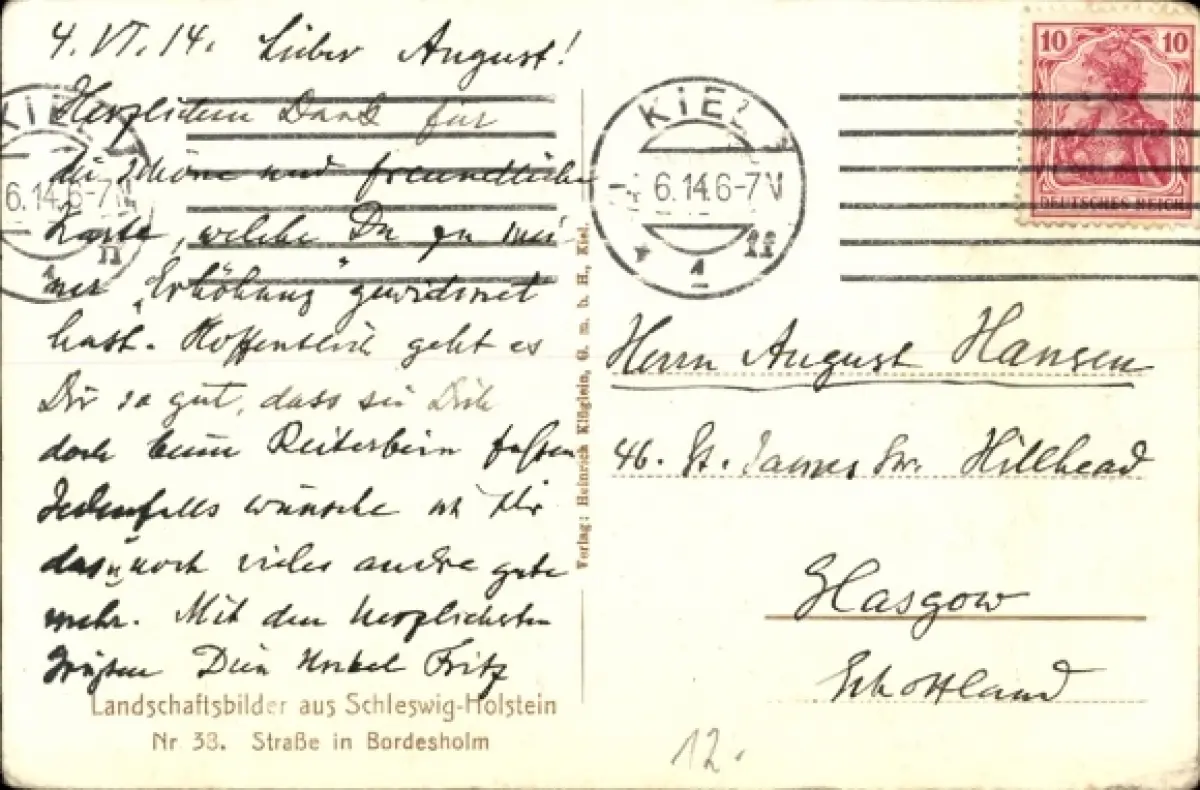 4. VI. 14. Lieber August!
Herzlichen Dank für
die schöne und freundliche
Karte, welche Du zu mei
ner „Erhöhung" gewidmet
hast. Hoffentlich geht es
Dir so gut, dass sie Dich
doch beim
Jedenfalls wünsche ich Dir
das u. noch vieles andre gute
mehr. Mit den herzlichsten
Grüßen Dein Onkel Fritz
Landschaftsbilder aus Schleswig-Holstein
Nr 38. Straße in Bordesholm
Verlag: Heinrich Klüglein, G. m. b. H., Kiel.
KIEL
6.14.6-7N
KIEL
6.14.6-7N
1
10 10
DEUTSCHES REICH
Herrn August Hansen
46. St. James Str. Hillhead
Glasgow
Schottland
12.